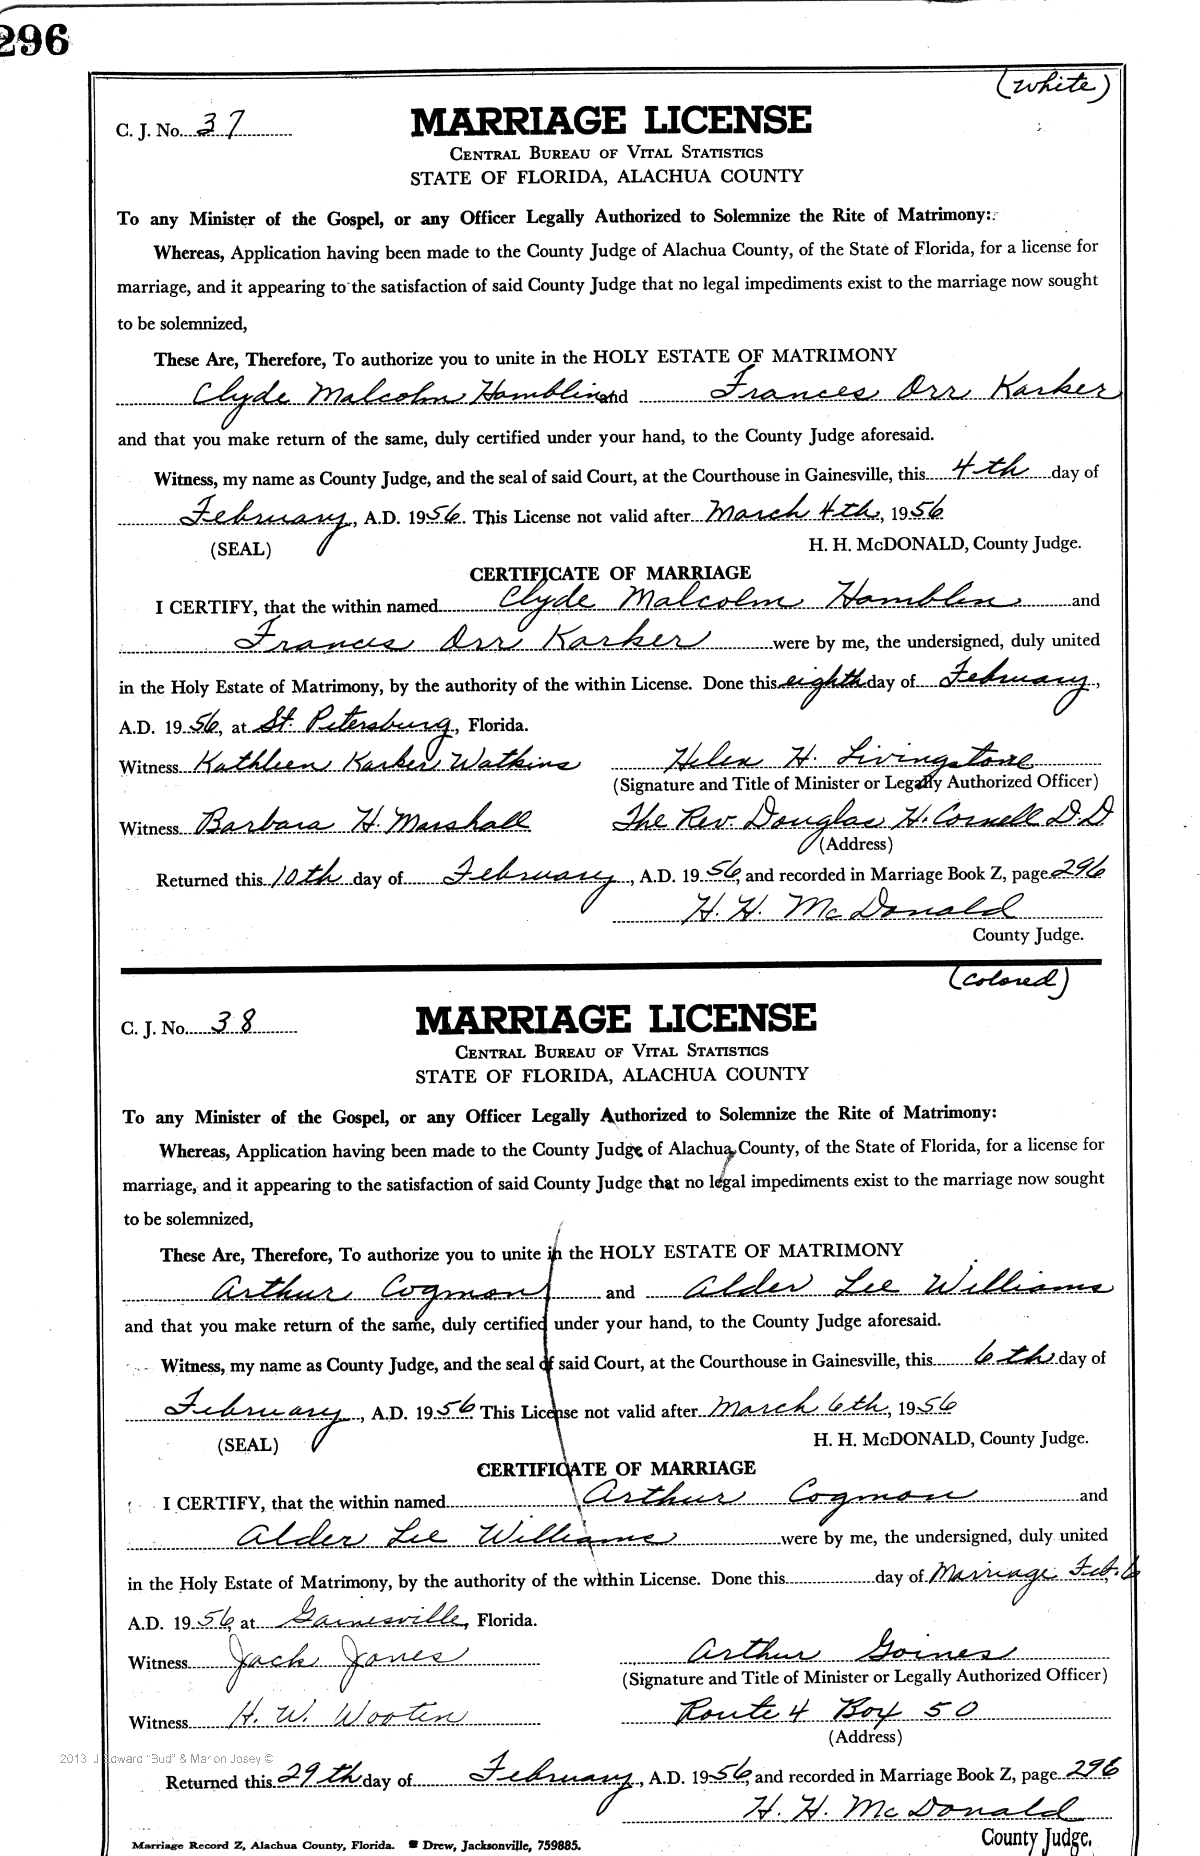 296
(white)
C. J. No. 37
MARRIAGE LICENSE
CENTRAL BUREAU OF VITAL STATISTICS
STATE OF FLORIDA, ALACHUA COUNTY
To any Minister of the Gospel, or any Officer Legally Authorized to Solemnize the Rite of Matrimony:
Whereas, Application having been made to the County Judge of Alachua County, of the State of Florida, for a license for
marriage, and it appearing to the satisfaction of said County Judge that no legal impediments exist to the marriage now sought
to be solemnized,
These Are, Therefore, To authorize you to unite in the HOLY ESTATE OF MATRIMONY
Clyde Malcolm Hamblin and Frances Orr Karker
and that you make return of the same, duly certified under your hand, to the County Judge aforesaid.
Witness, my name as County Judge, and the seal of said Court, at the Courthouse in Gainesville, this 4th day of
February, A.D. 1956. This License not valid after March 4th, 1956
(SEAL) H. H. McDONALD, County Judge.
CERTIFICATE OF MARRIAGE
I CERTIFY, that the within named Clyde Malcolm Hamblen and
Frances Orr Karker were by me, the undersigned, duly united
in the Holy Estate of Matrimony, by the authority of the within License. Done this eighth day of February,
A.D. 1956, at St. Petersburg, Florida.
Witness Kathleen Karker Watkins Helen H. Livingstone
(Signature and Title of Minister or Legally Authorized Officer)
Witness Barbara H. Marshall The Rev. Douglas H. Cornell D.D
(Address)
Returned this 10th day of February, A.D. 1956, and recorded in Marriage Book Z, page 296
H. H. McDonald
County Judge.
(colored)
C. J. No. 38
MARRIAGE LICENSE
CENTRAL BUREAU OF VITAL STATISTICS
STATE OF FLORIDA, ALACHUA COUNTY
To any Minister of the Gospel, or any Officer Legally Authorized to Solemnize the Rite of Matrimony:
Whereas, Application having been made to the County Judge of Alachua County, of the State of Florida, for a license for
marriage, and it appearing to the satisfaction of said County Judge that no legal impediments exist to the marriage now sought
to be solemnized,
These Are, Therefore, To authorize you to unite in the HOLY ESTATE OF MATRIMONY
Arthur Cogmon and Alder Lee Williams
and that you make return of the same, duly certified under your hand, to the County Judge aforesaid.
Witness, my name as County Judge, and the seal of said Court, at the Courthouse in Gainesville, this 6th day of
February, A.D. 1956. This License not valid after March 6th, 1956
(SEAL) H. H. McDONALD, County Judge.
CERTIFICATE OF MARRIAGE
I CERTIFY, that the within named Arthur Cogmon and
Alder Lee Williams were by me, the undersigned, duly united
in the Holy Estate of Matrimony, by the authority of the within License. Done this day of Marriage Feb. 6
A.D. 1956, at Gainesville, Florida.
Witness Jack Jones Arthur Goines
(Signature and Title of Minister or Legally Authorized Officer)
Witness H. W. Wooten Route 4 Box 50
(Address)
2013 J Edward "Bud" & Marion Josey ©
Returned this 29th day of February, A.D. 1956, and recorded in Marriage Book Z, page 296
H. H. McDonald
County Judge.
Marriage Record Z, Alachua County, Florida. Drew, Jacksonville, 759885.